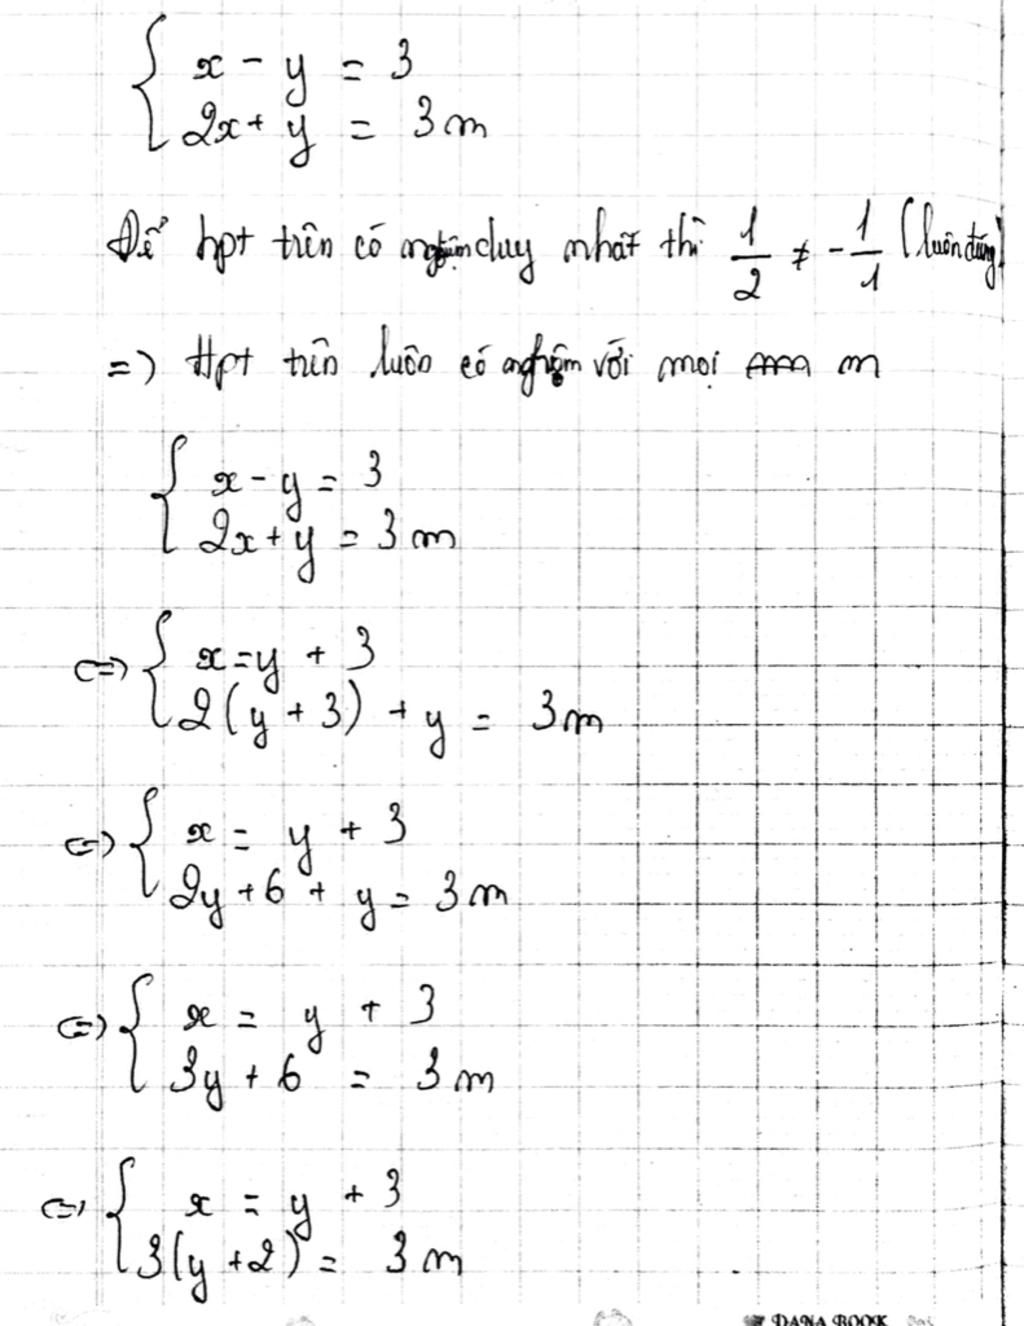 { x - y = 3
2x + y = 3m
Để hpt trên có nghiệm duy nhất thì 1/2 ≠ -1/1 (luôn đúng)
=> Hpt trên luôn có nghiệm với mọi m
{ x - y = 3
2x + y = 3m
<=> { x = y + 3
2(y + 3) + y = 3m
<=> { x = y + 3
2y + 6 + y = 3m
<=> { x = y + 3
3y + 6 = 3m
<=> { x = y + 3
3(y + 2) = 3m
DANA BOOK